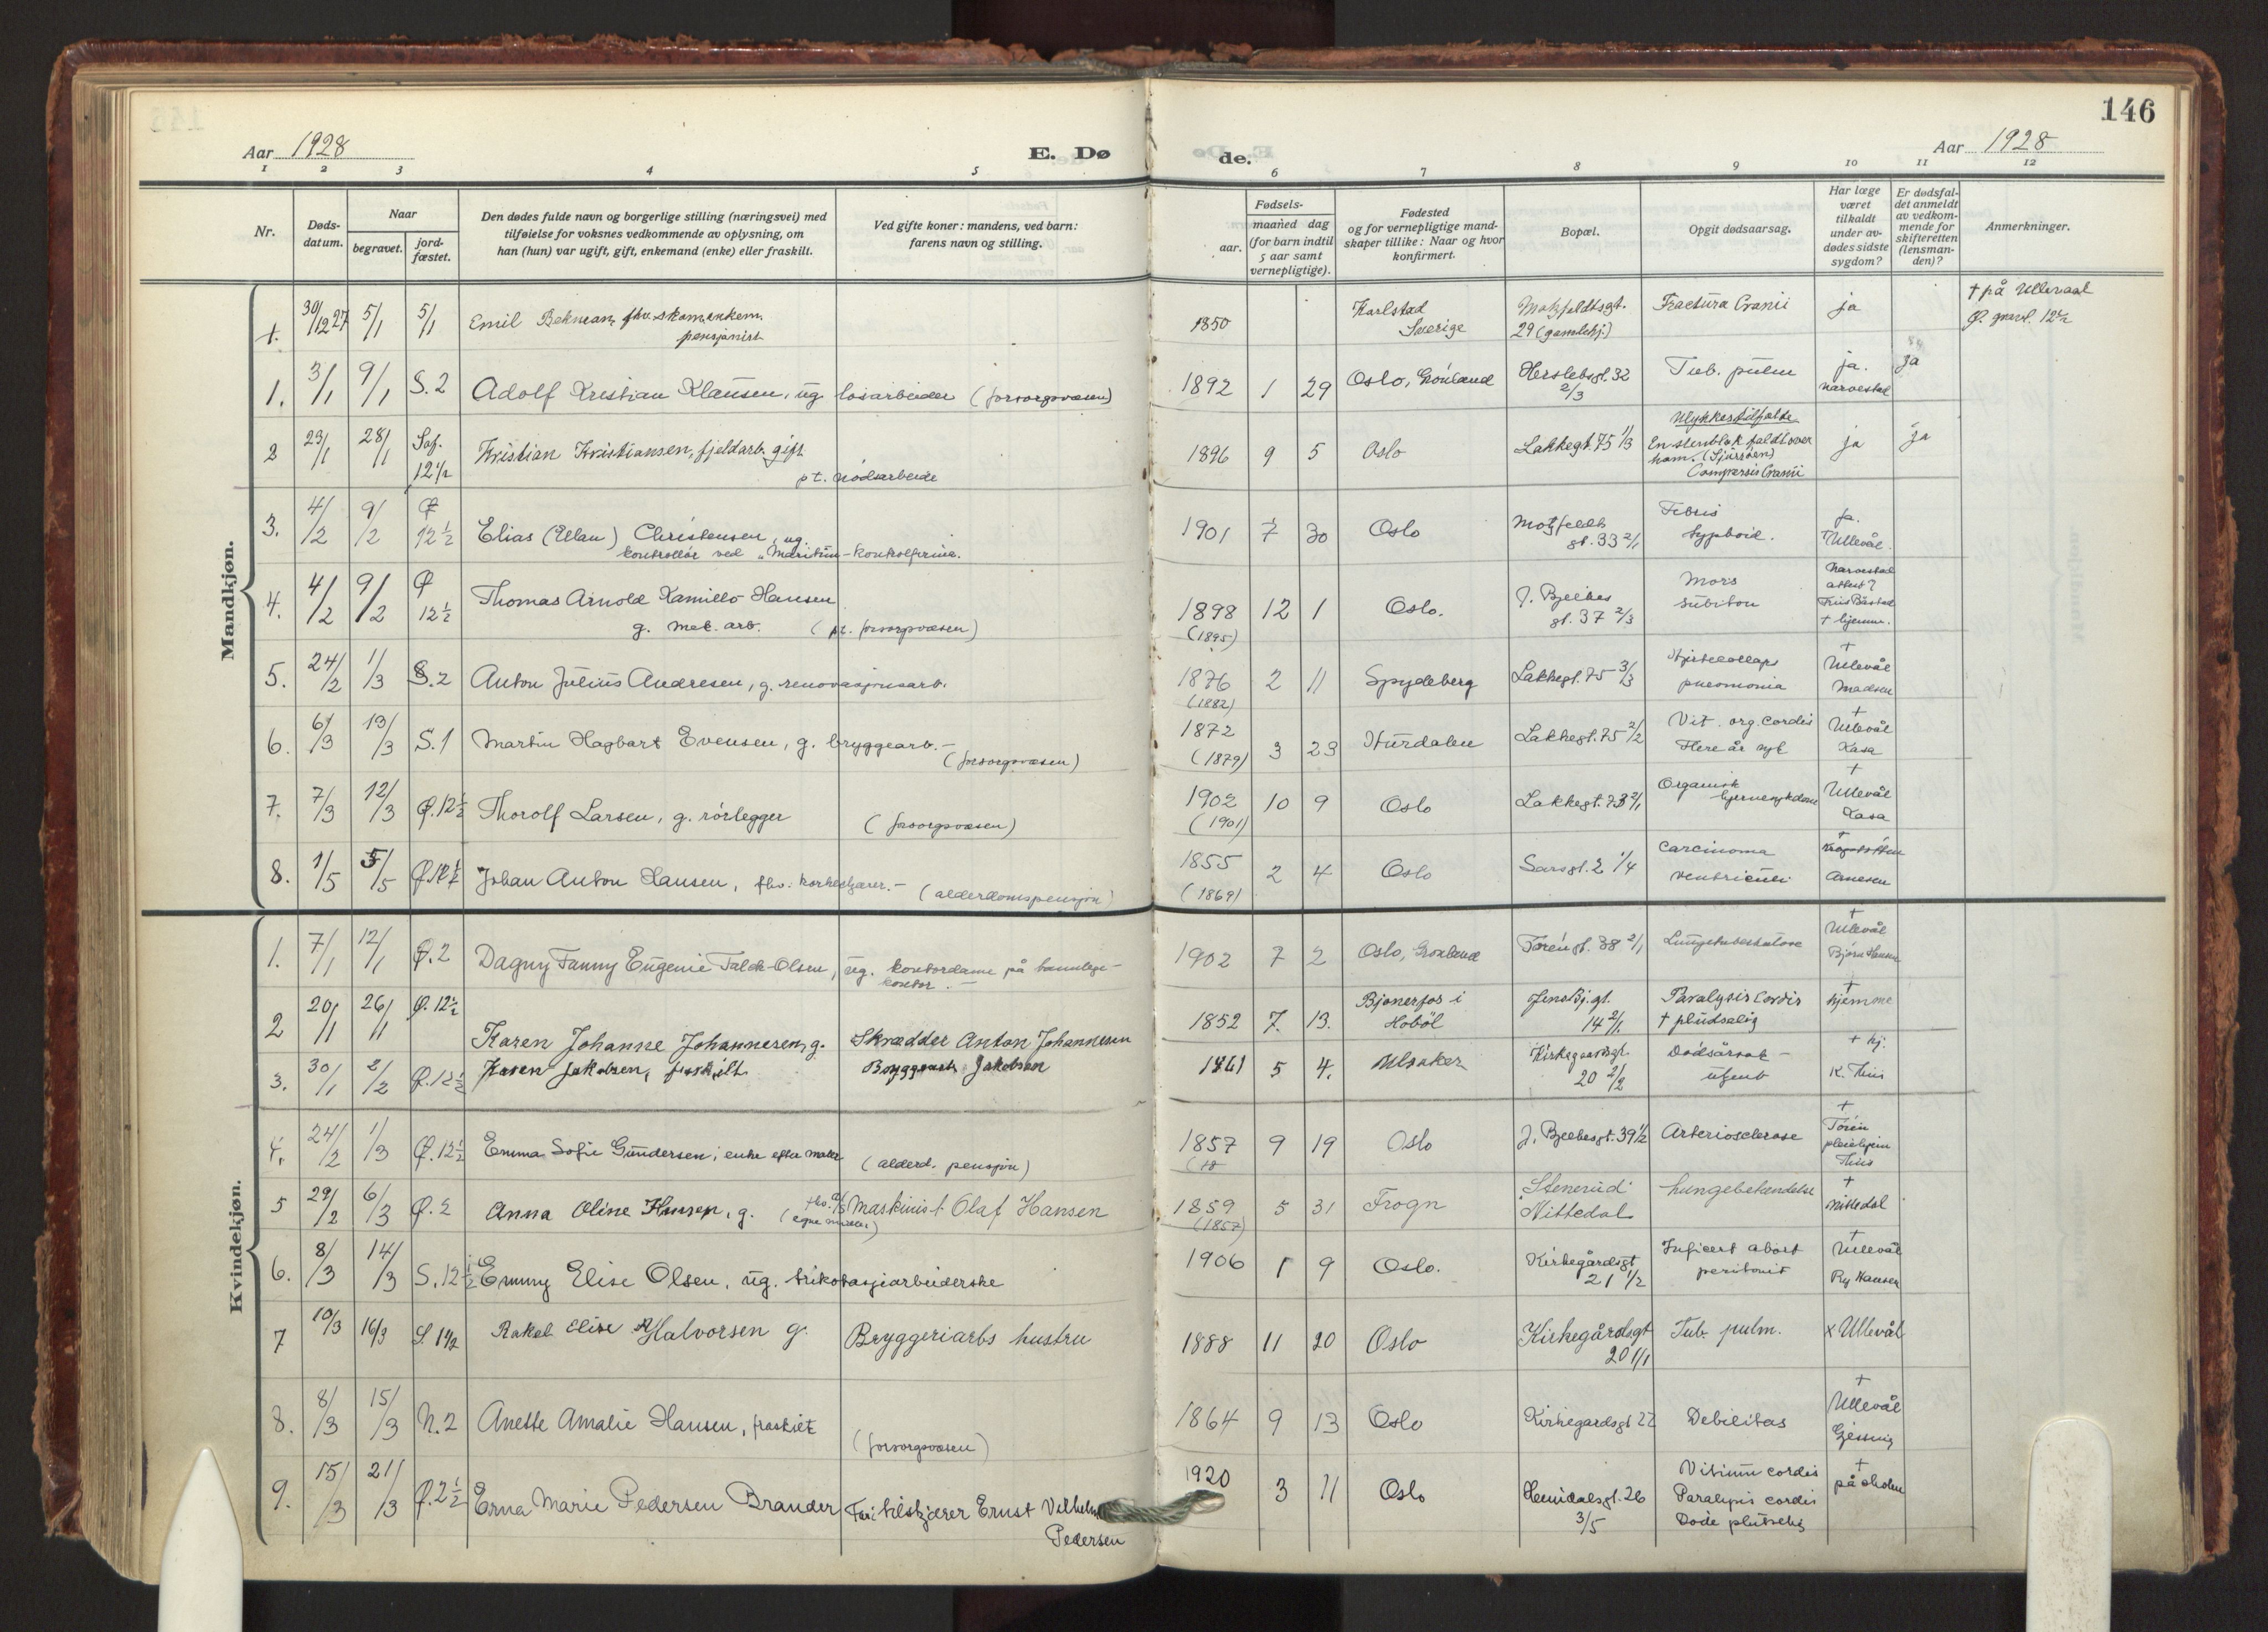 146
Aar 1928 E. Døde. Aar 1928
1 2 3 4 5 6 7 8 9 10 11 12
Nr. Døds-datum. Naar begravet. jord-fæstet. Den dødes fulde navn og borgerlige stilling (næringsvei) med tilføielse for voksnes vedkommende av oplysning, om han (hun) var ugift, gift, enkemand (enke) eller fraskilt. Ved gifte koner: mandens, ved barn: farens navn og stilling. Fødsels- aar. maaned dag (for barn indtil 5 aar samt vernepligtige). Fødested og for vernepligtige mandskaper tillike: Naar og hvor konfirmert. Bopæl. Opgit dødsaarsag. Har læge været tilkaldt under avdødes sidste sygdom? Er dødsfaldet anmeldt av vedkommende for skifteretten (lensmanden)? Anmerkninger.
Mandkjøn.
1. 30/12 27 5/1 5/1 Emil pensjonist 1850 Karlstad Sverige Motzfeldtsgt. 29 (gamlehj.) Fractura Cranii ja † på Ullevaal
1. 3/1 9/1 S. 2 Adolf Kristian Klausen, ug. løsarbeider (forsorgsvæsen) 1892 1 29 Oslo, Grønland Herslebsgt. 32 2/3 Tub. pulm ja. ja
2 23/1 28/1 12 1/2 Kristian Kristiansen, fjeldarb. gift pt. nødsarbeide 1896 9 5 Oslo Lakkegt. 75 1/3 Ulykkestilfælde En stenblok faldt over ham. Cranii ja ja
3. 4/2 9/2 Ø 12 1/2 Elias (Elan) Christensen, ug. kontrollør ved "Maritim-kontrolfirma. 1901 7 30 Oslo Motzfeldts gt. 33 2/1 Febris typhoid. ja. Ullevål.
4. 4/2 9/2 Ø 12 1/2 Thomas Arnold Kamillo Hansen g. mek. arb. (pt. forsorgvæsen) 1898 (1895) 12 1 Oslo. J. Bjelkes gt. 37 2/3 Mors † hjemme.
5. 24/2 1/3 S. 2 Anton Julius Andresen, g. renovasjonsarb. 1876 (1882) 2 11 Spydeberg Lakkegt. 75 3/3 pneomonia † Ullevål Madsen
6. 6/3 13/3 S. 1 Martin Hagbart Evensen, g. bryggearb. - (forsorgsvæsen) 1872 (1879) 3 23 Hurdalen Lakkegt. 75 2/2 Vit. org. cordis Flere år syk † Ullevål Kasa
7. 7/3 12/3 Ø. 12 1/2 Thorolf Larsen, g. rørlegger (forsorgsvæsen) 1902 (1901) 10 9 Oslo Lakkegt. 73 2/1 Organisk hjernesykdom † Ullevål Kasa
8. 1/5 5/5 Johan Anton Hansen, fhv. korkeskjærer. - (alderdomspensjon) 1855 (1869) 2 4 Oslo Sarsgt. 2 1/4 carcinoma ventriculi † Arnesen
Kvindekjøn.
1. 7/1 12/1 Ø. 2 Dagny Fanny Eugenie Falck-Olsen, ug. kontordame på tannlege-kontor. - 1902 7 2 Oslo, Grønland Torengt. 38 2/1 Lungetuberkulose † Ullevål Bjørn Hansen
2 20/1 26/1 Ø. 12 1/2 Karen Johanne Johannesen, g. Skrædder Anton Johannesen 1852 7. 13. Bjonerfos i Hobøl Jens Bj. gt. 14 2/1 Paralysis cordis † pludselig † hjemme
3. 30/1 2/2 Ø. 12 1/2 Karen Jakobsen, fraskilt Bryggearb. Jakobsen 1861 5 4. Ulsaker Kirkegaardsgt. 20 2/2 Dødsårsak - ukjent † hj. K. Thiis
4. 24/2 1/3 Ø. 12 1/2 Emma Sofie Gundersen, enke efter maler (alderd. pensjon) 1857 (18 9 19 Oslo J. Bjelkesgt. 39 1/2 Arteriosclerose † Tøien pleiehjem Thiis
5 29/2 6/3 Ø. 2 Anna Oline Hansen, g. Maskinist Olaf Hansen 1859 (1857) 5 31 Frogn Stenerud Nittedal Lungebetændelse † Nittedal
6. 8/3 14/3 S. 12 1/2 Emmy Elise Olsen, ug. trikotasjiarbeiderske 1906 1 9 Oslo. Kirkegårdsgt 21 1/2 Inficert abort peritonit † Ullevål Ry Hansen
7 10/3 16/3 S 1 1/2 Rakel Elise Halvorsen g. Bryggeriarbs hustru 1888 11 20 Oslo Kirkegårdsgt 20 1/1 Tub. pulm. x Ullevål
8. 8/3 15/3 N. 2 Anette Amalie Hansen, fraskilt (forsorgsvæsen) 1864 9 13 Oslo Kirkegardsgt 22 Debilitas † Ullevål Gjessing
9. 15/3 21/3 Ø. 2 1/2 Erna Marie Pedersen Brander Ernst Vilhelm Pedersen 1920 3 11 Oslo Heimdalsgt. 26 3/5 Vitium cordis Paralysis cordis Døde plutselig † på skolen